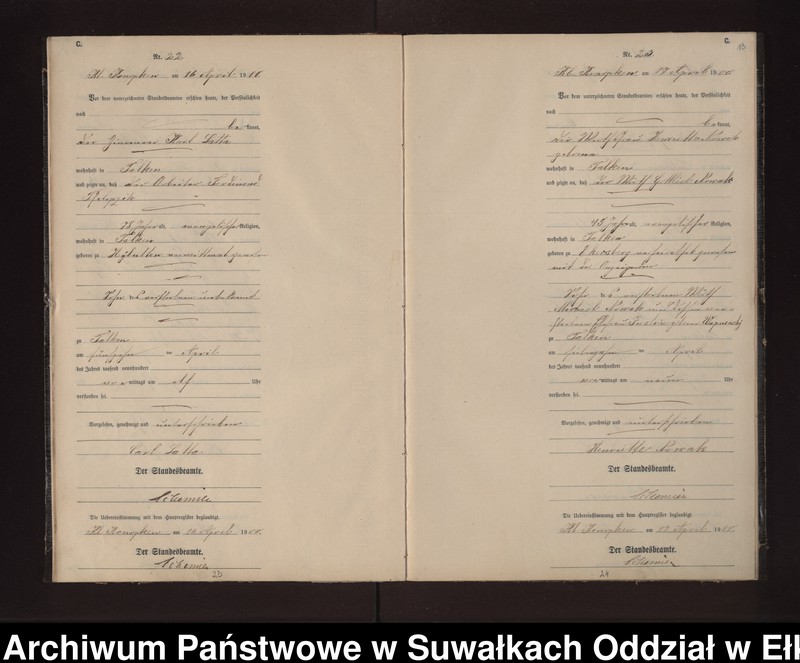 C.
Nr. 22
Kl. Konopken am 16 April 1900.
Vor dem unterzeichneten Standesbeamten erschien heute, der Persönlichkeit
nach
be kannt,
der Karl Latta
wohnhaft in Falken
und zeigte an, daß der Arbeiter Ferdinand
78 Jahre alt, evangelischer Religion,
wohnhaft in Falken
geboren zu
Sohn des verstorben unbekannt
zu Falken
am fünfzehn ten April
des Jahres tausend neunhundert
vor mittags um elf Uhr
verstorben sei.
Vorgelesen, genehmigt und unterschrieben
Carl Latta
Der Standesbeamte.
Die Uebereinstimmung mit dem Hauptregister beglaubigt.
Kl. Konopken am 16 April 1900.
Der Standesbeamte.
23
C.
13
Nr. 23
Kl. Konopken am 17 April 1900
Vor dem unterzeichneten Standesbeamten erschien heute, der Persönlichkeit
nach
be kannt,
die Wirthsfrau Henriette Nowak
geborene
wohnhaft in Falken
und zeigte an, daß der Wirth Gottlieb Nowak
45 Jahre alt, evangelischer Religion,
wohnhaft in Falken
geboren zu verheirathet gewesen
mit der Anzeigenden
Sohn des verstorbenen Wirth
Michael Nowak und dessen ver-
storbenen Ehefrau geborene
zu Falken
am siebzehn ten April
des Jahres tausend neunhundert
vor mittags um neun Uhr
verstorben sei.
Vorgelesen, genehmigt und unterschrieben
Henriette Nowak
Der Standesbeamte.
Die Uebereinstimmung mit dem Hauptregister beglaubigt.
Kl. Konopken am 17 April 1900.
Der Standesbeamte.
24
Archiwum Państwowe w Suwałkach Oddział w Ełk